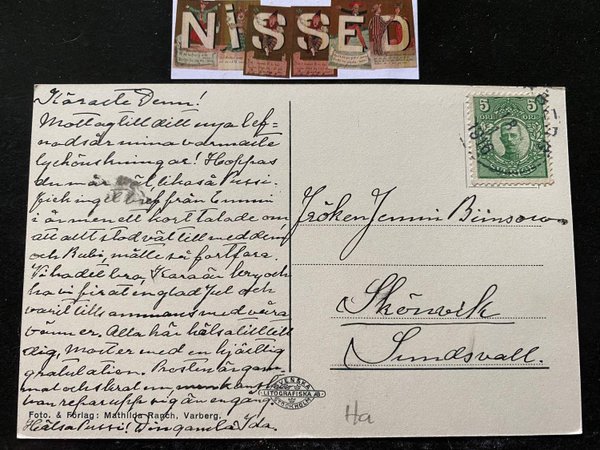 NISSED
Käraste Demi!
Mottag till ditt nya lef-
nadsår mina varmaste
lyckönskningar! Hoppas
du mår väl likaså Pussi.
fick inget bref från Emmi
i år men ett kort talade om
att allt stod väl till med dem
och Bubi, måtte så fortfara.
Vi ha det bra, Klara är kry och
ha vi firat en glad Jul och
varit tillsammans med våra
vänner. Alla här hälsa till
dig, Moster med en hjärtlig
gratulation.
van reparupp sig än en gång.
Hälsa Pussi! Din gamla Ida.
Foto. & Förlag: Mathilda Ranch, Varberg.
SVENSKA
LITOGRAFISKA AB
STOCKHOLM
5 5
ÖRE
Fröken Jenni Bünsow
Skönvik
Sundsvall.
Ha